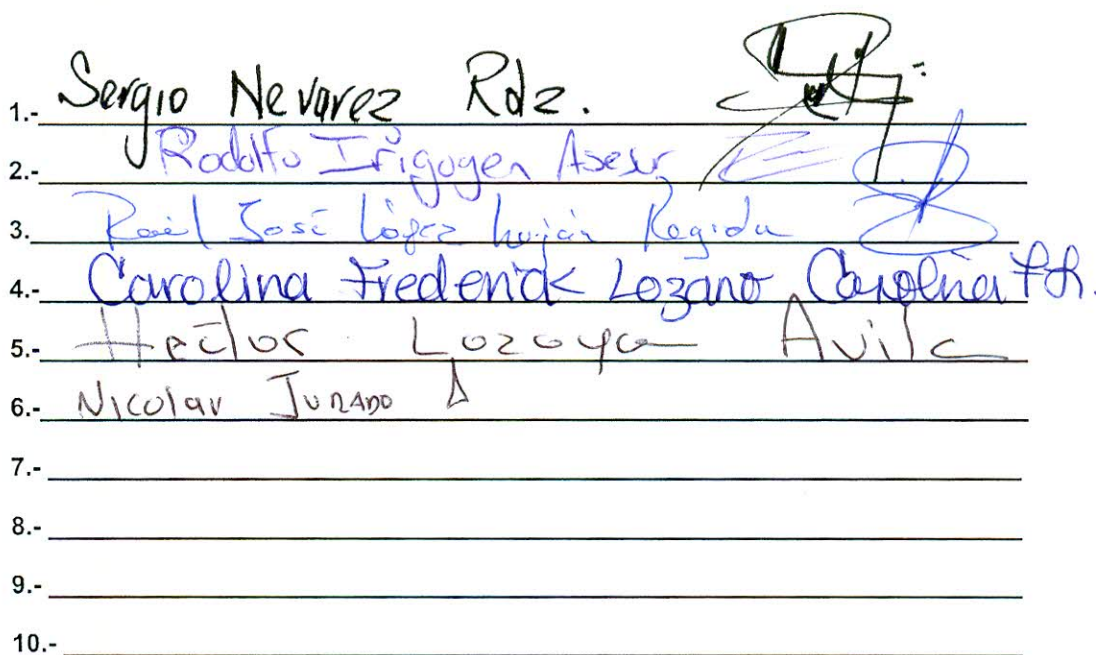 1.- Sergio Nevarez Rdz.
2.- Rodolfo Irigoyen Asesor
3.- Raúl José López Luján Regidor
4.- Carolina Frederick Lozano Carolina F L.
5.- Hector Lozoya Avila
6.- Nicolas JURADO
7.-
8.-
9.-
10.-